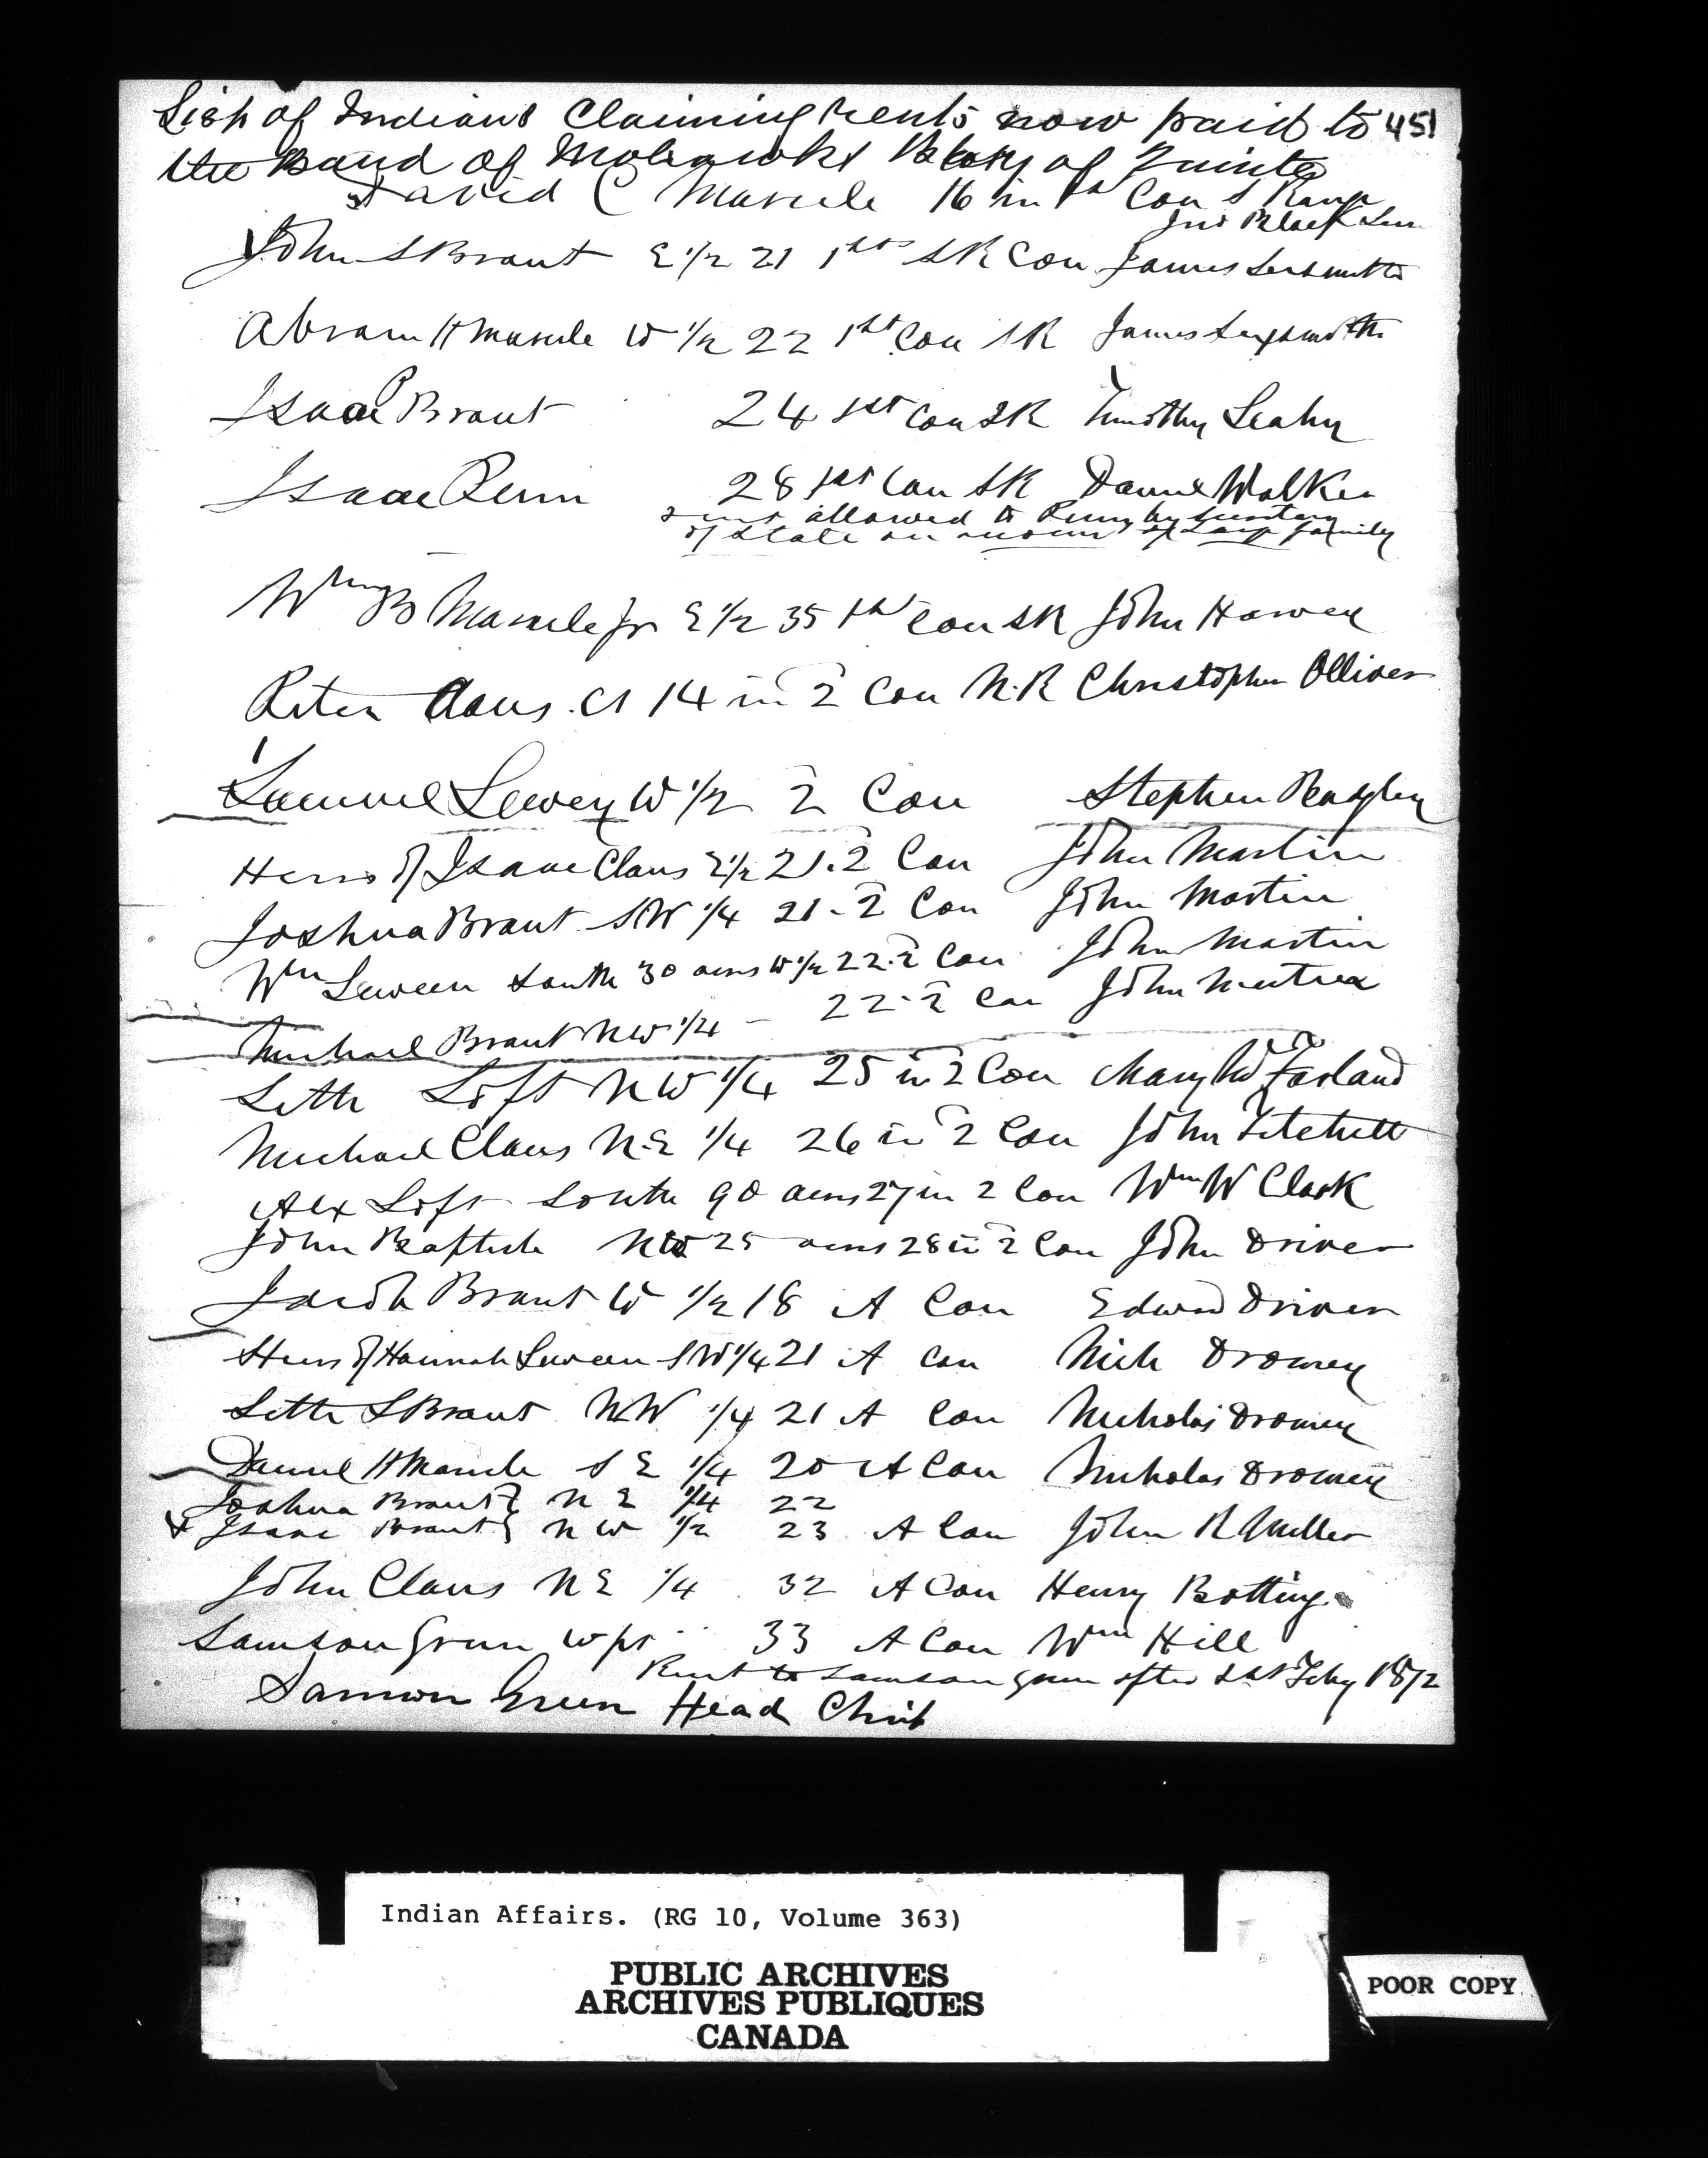 List of Indians Claiming Rents now paid to 451
the Band of Mohawks Bay of Quinte
David C Maracle 16 in 1st Con S Range
Jno Black
John S Brant E 1/2 21 1st SR Con James Sexsmith
Abram H Maracle W 1/2 22 1st Con SR James Sexsmith
Isaac Brant 24 1st Con SR Timothy Leahy
Isaac Penn 28 1st Con SR Daniel Walker
allowed to Penn by Secretary
of State on account of Large family
Wm B Maracle Jr E 1/2 35 1st Con SR John Howey
Peter Claus 14 in 2 Con N.R Christopher Olliver
Samuel Lewey W 1/2 2 Con Stephen Beazley
Heirs of Isaac Claus E 1/2 21.2 Con John Martin
Joshua Brant SW 1/4 21-2 Con John Martin
Wm Seween South 30 acres W 1/2 22.2 Con John Martin
Michael Brant NW 1/4 - 22-2 Con John
Seth Loft NW 1/4 25 in 2 Con Mary McFarland
Michael Claus N.E 1/4 26 in 2 Con John
Alex Loft South 90 acres 27 in 2 Con Wm W Clark
John Baptiste NW 25 acres 28 in 2 Con John Driver
Jacob Brant W 1/2 18 A Con Edward Driver
Heirs of Hannah Seween SW 1/4 21 A Con Nich Dromey
Seth S Brant NW 1/4 21 A Con Nicholas Dromey
Daniel H Maracle S E 1/4 20 A Con Nicholas Dromey
Joshua Brant } N E 1/4 22
& Isaac Brant } N W 1/2 23 A Con John R Miller
John Claus N E 1/4 32 A Con Henry Botting
Samson Green W pt 33 A Con Wm Hill
Rent to Samson Green after 1st Feby 1872
Samson Green Head Chief
Indian Affairs. (RG 10, Volume 363)
PUBLIC ARCHIVES
ARCHIVES PUBLIQUES
CANADA
POOR COPY